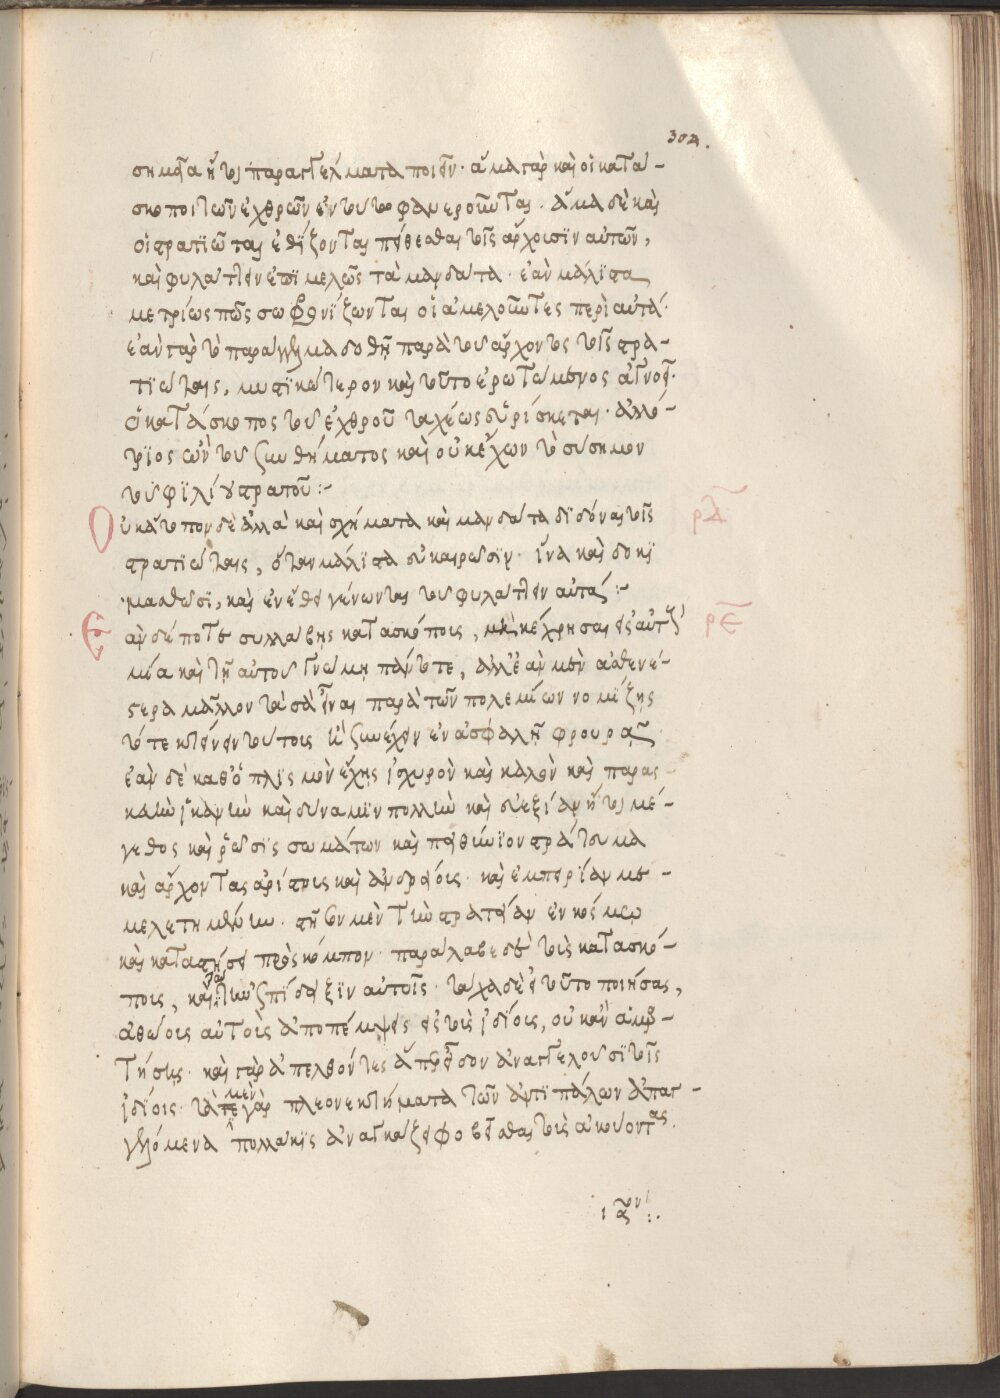 304.
σημεῖα ἢ τὰ παραγγέλματα ποιεῖν· ἅμα γὰρ καὶ οἱ κατά-
σκοποι τῶν ἐχθρῶν ἐν τούτω φανεροῦνται· ἅμα δὲ καὶ
οἱ στρατιῶται ἐθίζονται πείθεσθαι τοῖς ἄρχουσιν αὐτῶν,
καὶ φυλάττειν ἐπιμελῶς τὰ μανδάτα· ἐὰν μάλιστα
μετρίως πῶς σωφρονίζωνται οἱ ἀμελοῦντες περὶ αὐτά·
ἐὰν γὰρ τὸ παράγγελμα δοθῆ παρὰ τοῦ ἄρχοντος τοῖς στρα-
τιώταις, μυστικώτερον καὶ τοῦτο ἐρωτώμενος ἀγνοεῖ·
ὁ κατάσκοπος τοῦ ἐχθροῦ ταχέως εὑρίσκεται· ἀλλό-
τριος ὢν τοῦ συνθήματος καὶ οὐκ ἔχων τὸ σύσημον
τοῦ φιλίου στρατοῦ:-
Οὐκ ἄτοπον δὲ ἀλλὰ καὶ σχήματα καὶ μανδάτα διδόναι τοῖς
στρατιώταις, ὅταν μάλιστα εὐκαιρῶσιν· ἵνα καὶ δοκι
μασθῶσι, καὶ ἐν ἔθει γένωνται τοῦ φυλάττειν αὐτά:-
ρδ
Ἐὰν δέ ποτε συλλάβης κατασκόπους, μὴ κέχρησαι ἐξ αὐτῆς
μία καὶ τῆ αὐτοῦ γνώμη πάντοτε, ἀλλ' ἐὰν μὲν ἀσθενέ-
στερα μᾶλλον τὰ σὰ εἶναι παρὰ τῶν πολεμίων νομίζης
τότε κτείνειν τούτους ἢ συνέχειν ἐν ἀσφαλῆ φρουρᾶ·
ἐὰν δὲ καθόπλισμὸν ἔχης ἰσχυρὸν καὶ καλὸν καὶ παρασ-
κευὴν ἱκανὴν καὶ δύναμιν πολλὴν καὶ εὐεξίαν ἤτοι μέ-
γεθος καὶ ῥῶσις σωμάτων καὶ πειθήνιον στράτευμα
καὶ ἄρχοντας ἀρίστους καὶ ἀνδρείους· καὶ ἐμπειρίαν με-
μελετημένην· στῆσον μὲν τὴν στρατείαν ἐν κόσμω
καὶ κατάστησε πρὸς κόμπον· παράλαβε δὲ τοὺς κατασκό-
πους, καὶ
ἀθώους αὐτοὺς ἀποπέμψεις εἰς τοὺς ἰδίους, οὐκ ἂν ἁμαρ-
τήσεις· καὶ γὰρ ἀπελθόντες ἅπερ εἶδον ἀναγγέλουσι τοῖς
ἰδίοις· τὰ μὲν γὰρ πλεονεκτήματα τῶν ἀντιπάλων ἀπαγ-
γελλόμενα πολλάκις ἀναγκάζει φοβεῖσθαι τοὺς ἀκούοντας.
ρε